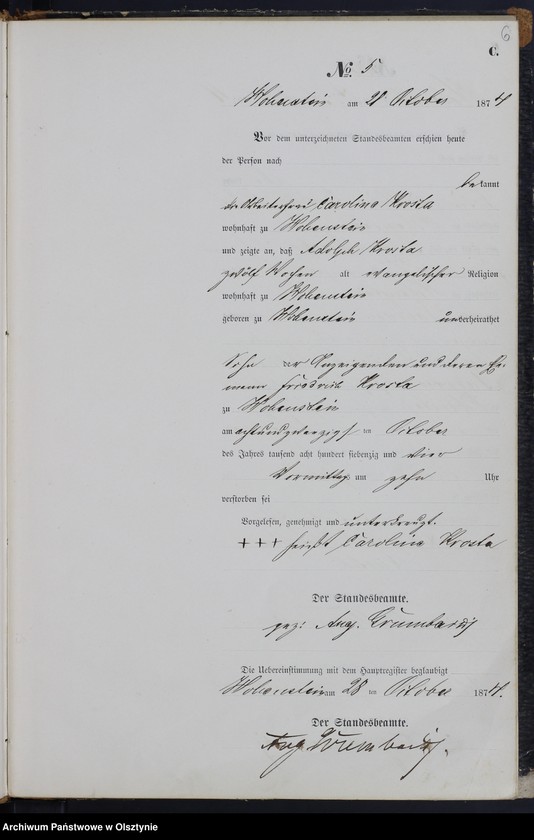 6
C.
No. 5
Hohenstein am 28 October 1874
Vor dem unterzeichneten Standesbeamten erschien heute
der Person nach
bekannt
die Arbeiterfrau Caroline Krosta
wohnhaft zu Hohenstein
und zeigte an, daß Adolph Krosta
zwölf Wochen alt evangelischer Religion
wohnhaft zu Hohenstein
geboren zu Hohenstein unverheirathet
Sohn der Anzeigenden und deren Ehe-
mann Friedrich Krosta
zu Hohenstein
am achtundzwanzigsten October
des Jahres tausend acht hundert siebenzig und vier
Vormittags um zehn Uhr
verstorben sei
Vorgelesen, genehmigt und unterkreuzt.
+++ heißt Caroline Krosta
Der Standesbeamte.
gez: Aug.
Die Uebereinstimmung mit dem Hauptregister beglaubigt
Hohenstein am 28 ten October 1874.
Der Standesbeamte.
Aug
Archiwum Państwowe w Olsztynie